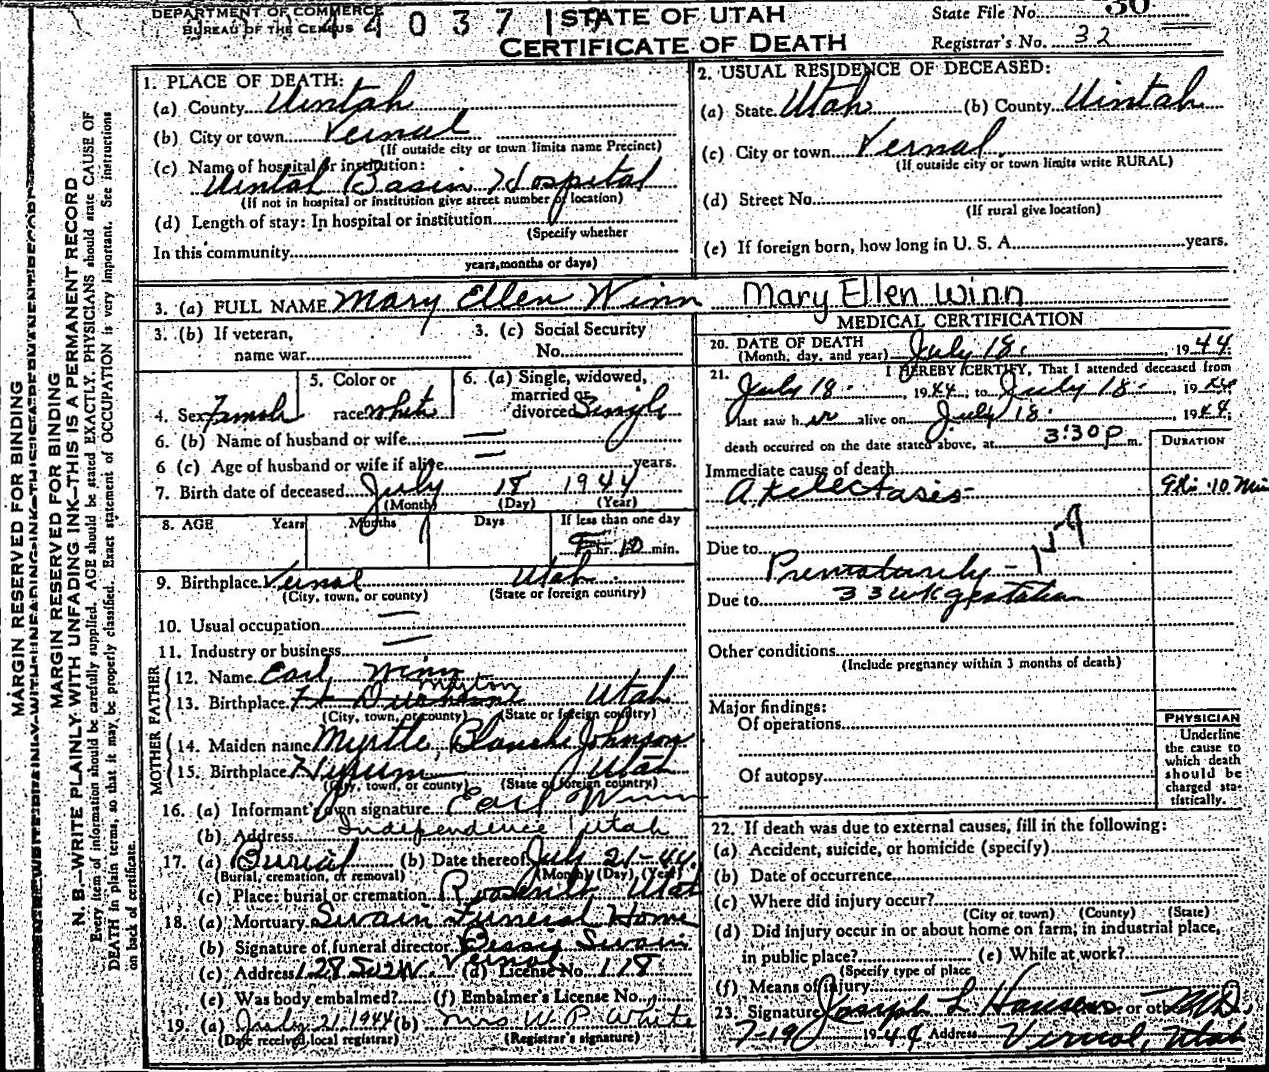 DEPARTMENT OF COMMERCE
BUREAU OF THE CENSUS
4 4 0 3 7
STATE OF UTAH
CERTIFICATE OF DEATH
State File No. 30
Registrar's No. 32
1. PLACE OF DEATH:
(a) County Uintah
(b) City or town Vernal
(If outside city or town limits name Precinct)
(c) Name of hospital or institution:
Uintah Basin Hospital
(If not in hospital or institution give street number or location)
(d) Length of stay: In hospital or institution
(Specify whether
In this community
years, months or days)
2. USUAL RESIDENCE OF DECEASED:
(a) State Utah (b) County Uintah
(c) City or town Vernal
(If outside city or town limits write RURAL)
(d) Street No.
(If rural give location)
(e) If foreign born, how long in U. S. A. years.
3. (a) FULL NAME Mary Ellen Winn Mary Ellen Winn
3. (b) If veteran,
name war
3. (c) Social Security
No.
4. Sex Female
5. Color or
race white
6. (a) Single, widowed,
married or
divorced Single
6. (b) Name of husband or wife —
6 (c) Age of husband or wife if alive — years.
7. Birth date of deceased July 18 1944
(Month) (Day) (Year)
8. AGE Years Months Days If less than one day
hr. 10 min.
9. Birthplace Vernal Utah
(City, town, or county) (State or foreign country)
10. Usual occupation —
11. Industry or business —
FATHER
12. Name Earl Winn
13. Birthplace Ft Duchesne Myton Utah
(City, town, or county) (State or foreign country)
MOTHER
14. Maiden name Myrtle Blanche Johnson
15. Birthplace Hyrum Utah
(City, town, or county) (State or foreign country)
16. (a) Informant's own signature Earl Winn
(b) Address Independence Utah
17. (a) Burial (b) Date thereof July 21-44
(Burial, cremation, or removal) (Month) (Day) (Year)
(c) Place: burial or cremation Roosevelt Utah
18. (a) Mortuary Swain Funeral Home
(b) Signature of funeral director Bessie Swain
(c) Address 128 S 2 W Vernal (d) License No. 118
(e) Was body embalmed? (f) Embalmer's License No.
19. (a) July 21, 1944 (b) Mrs W. P. White
(Date received local registrar) (Registrar's signature)
MEDICAL CERTIFICATION
20. DATE OF DEATH
(Month, day, and year) July 18. , 1944.
21. I HEREBY CERTIFY, That I attended deceased from
July 18. , 1944, to July 18. , 1944
I last saw her alive on July 18. , 1944,
death occurred on the date stated above, at 3:30 p m.
DURATION
Immediate cause of death
Atelectasis 10 Min
Due to
Prematurity - 159
Due to 33 wk gestation
Other conditions
(Include pregnancy within 3 months of death)
Major findings:
Of operations
Of autopsy
PHYSICIAN
Underline
the cause to
which death
should be
charged sta-
tistically.
22. If death was due to external causes, fill in the following:
(a) Accident, suicide, or homicide (specify)
(b) Date of occurrence
(c) Where did injury occur?
(City or town) (County) (State)
(d) Did injury occur in or about home on farm, in industrial place,
in public place? (e) While at work?
(Specify type of place
(f) Means of injury
23. Signature Joseph L Hansen or other MD
7-19 1944 Address Vernal, Utah
MARGIN RESERVED FOR BINDING
MARGIN RESERVED FOR BINDING
N. B.—WRITE PLAINLY WITH UNFADING INK—THIS IS A PERMANENT RECORD
Every item of information should be carefully supplied. AGE should be stated EXACTLY. PHYSICIANS should state CAUSE OF
DEATH in plain terms, so that it may be properly classified. Exact statement of OCCUPATION is very important. See instructions
on back of certificate.